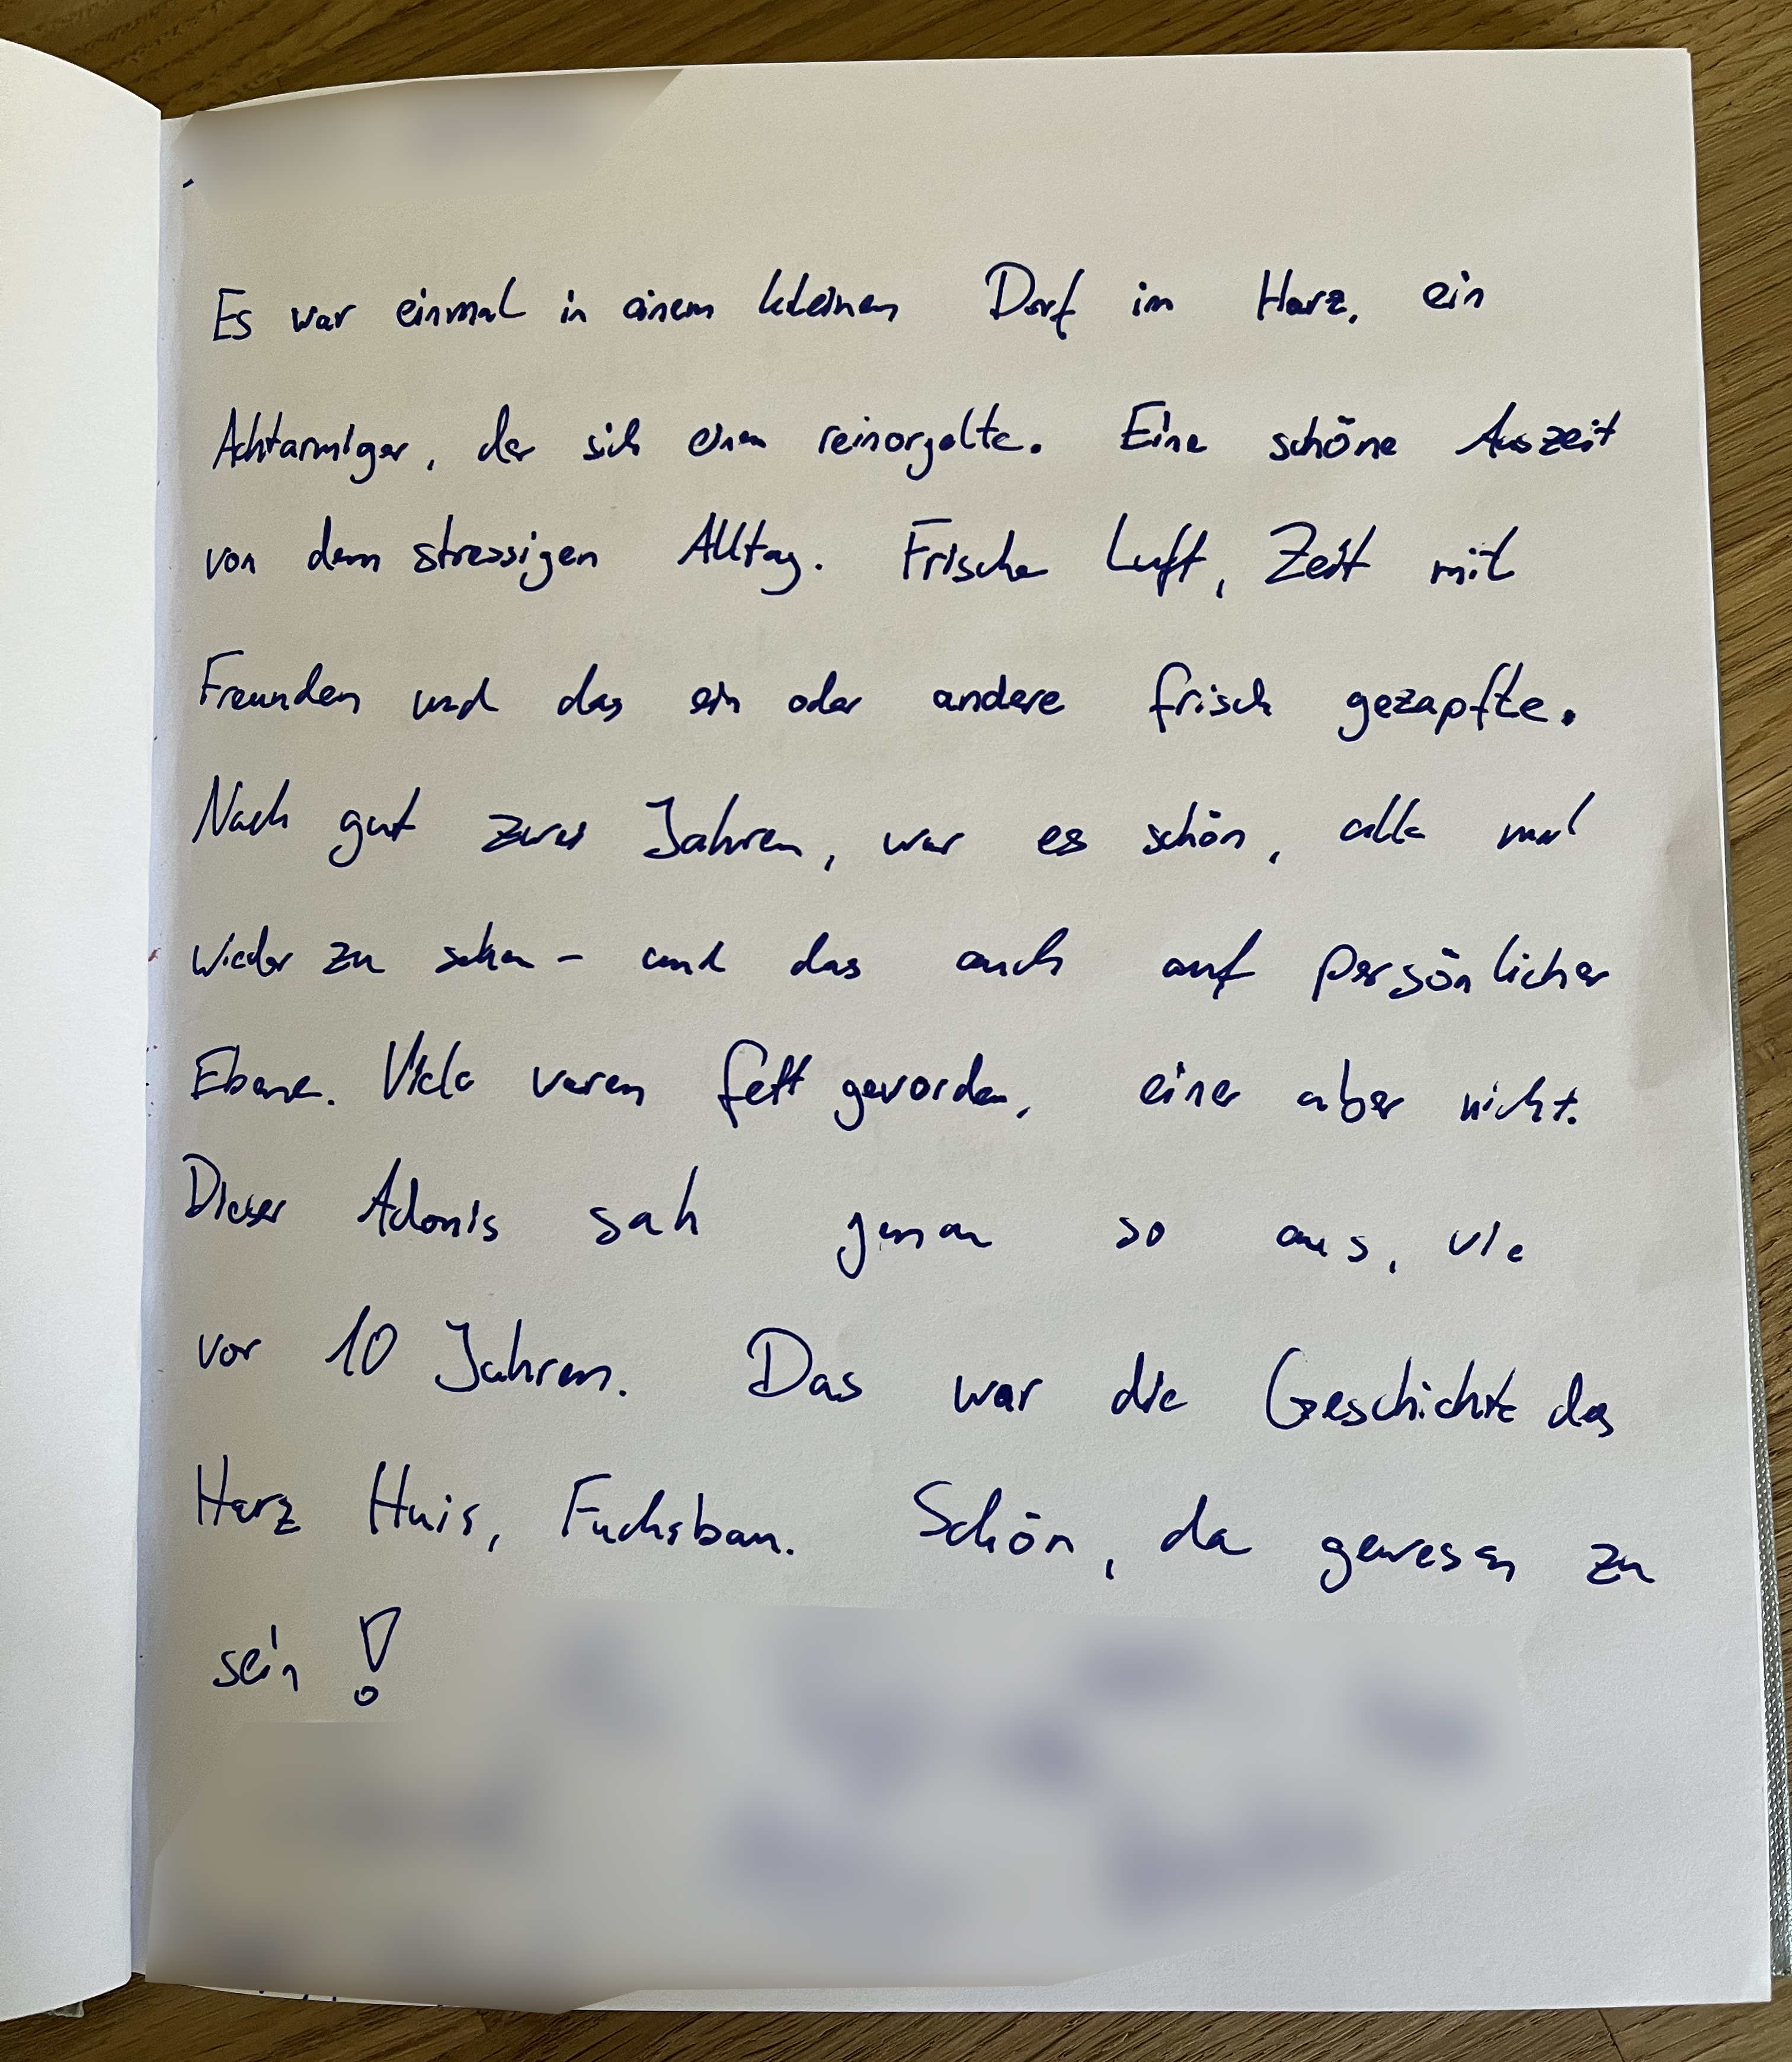 Es war einmal in einem kleinen Dorf im Harz, ein
Achtarmiger, der sich einen reinorgelte. Eine schöne Auszeit
von dem stressigen Alltag. Frische Luft, Zeit mit
Freunden und das ein oder andere frisch gezapfte.
Nach gut zwei Jahren, war es schön, alle mal
wieder zu sehen - und das auch auf persönlicher
Ebene. Viele waren fett geworden, einer aber nicht.
Dieser Adonis sah genau so aus, wie
vor 10 Jahren. Das war die Geschichte des
Harz Huis, Fuchsbau. Schön, da gewesen zu
sein!